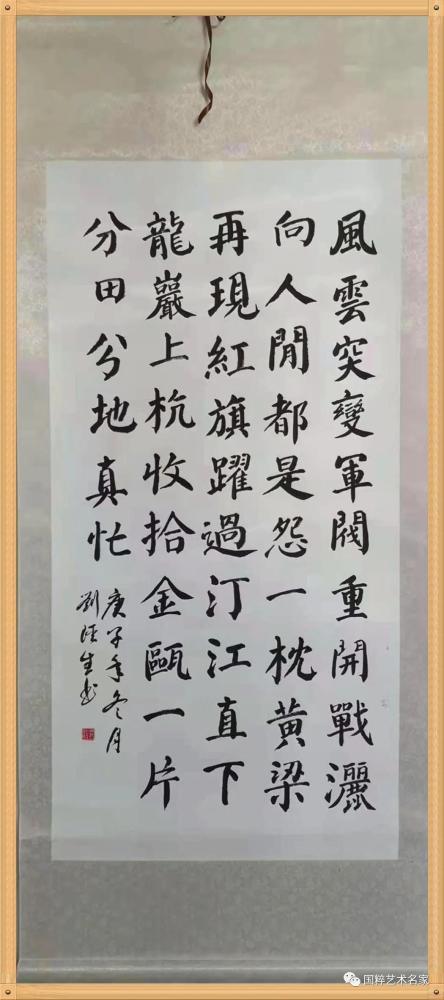 風雲突變軍閥重開戰灑
向人間都是怨一枕黄梁
再現紅旗躍過汀江直下
龍巖上杭收拾金甌一片
分田分地真忙
庚子年冬月
劉
生书
国粹艺术名家